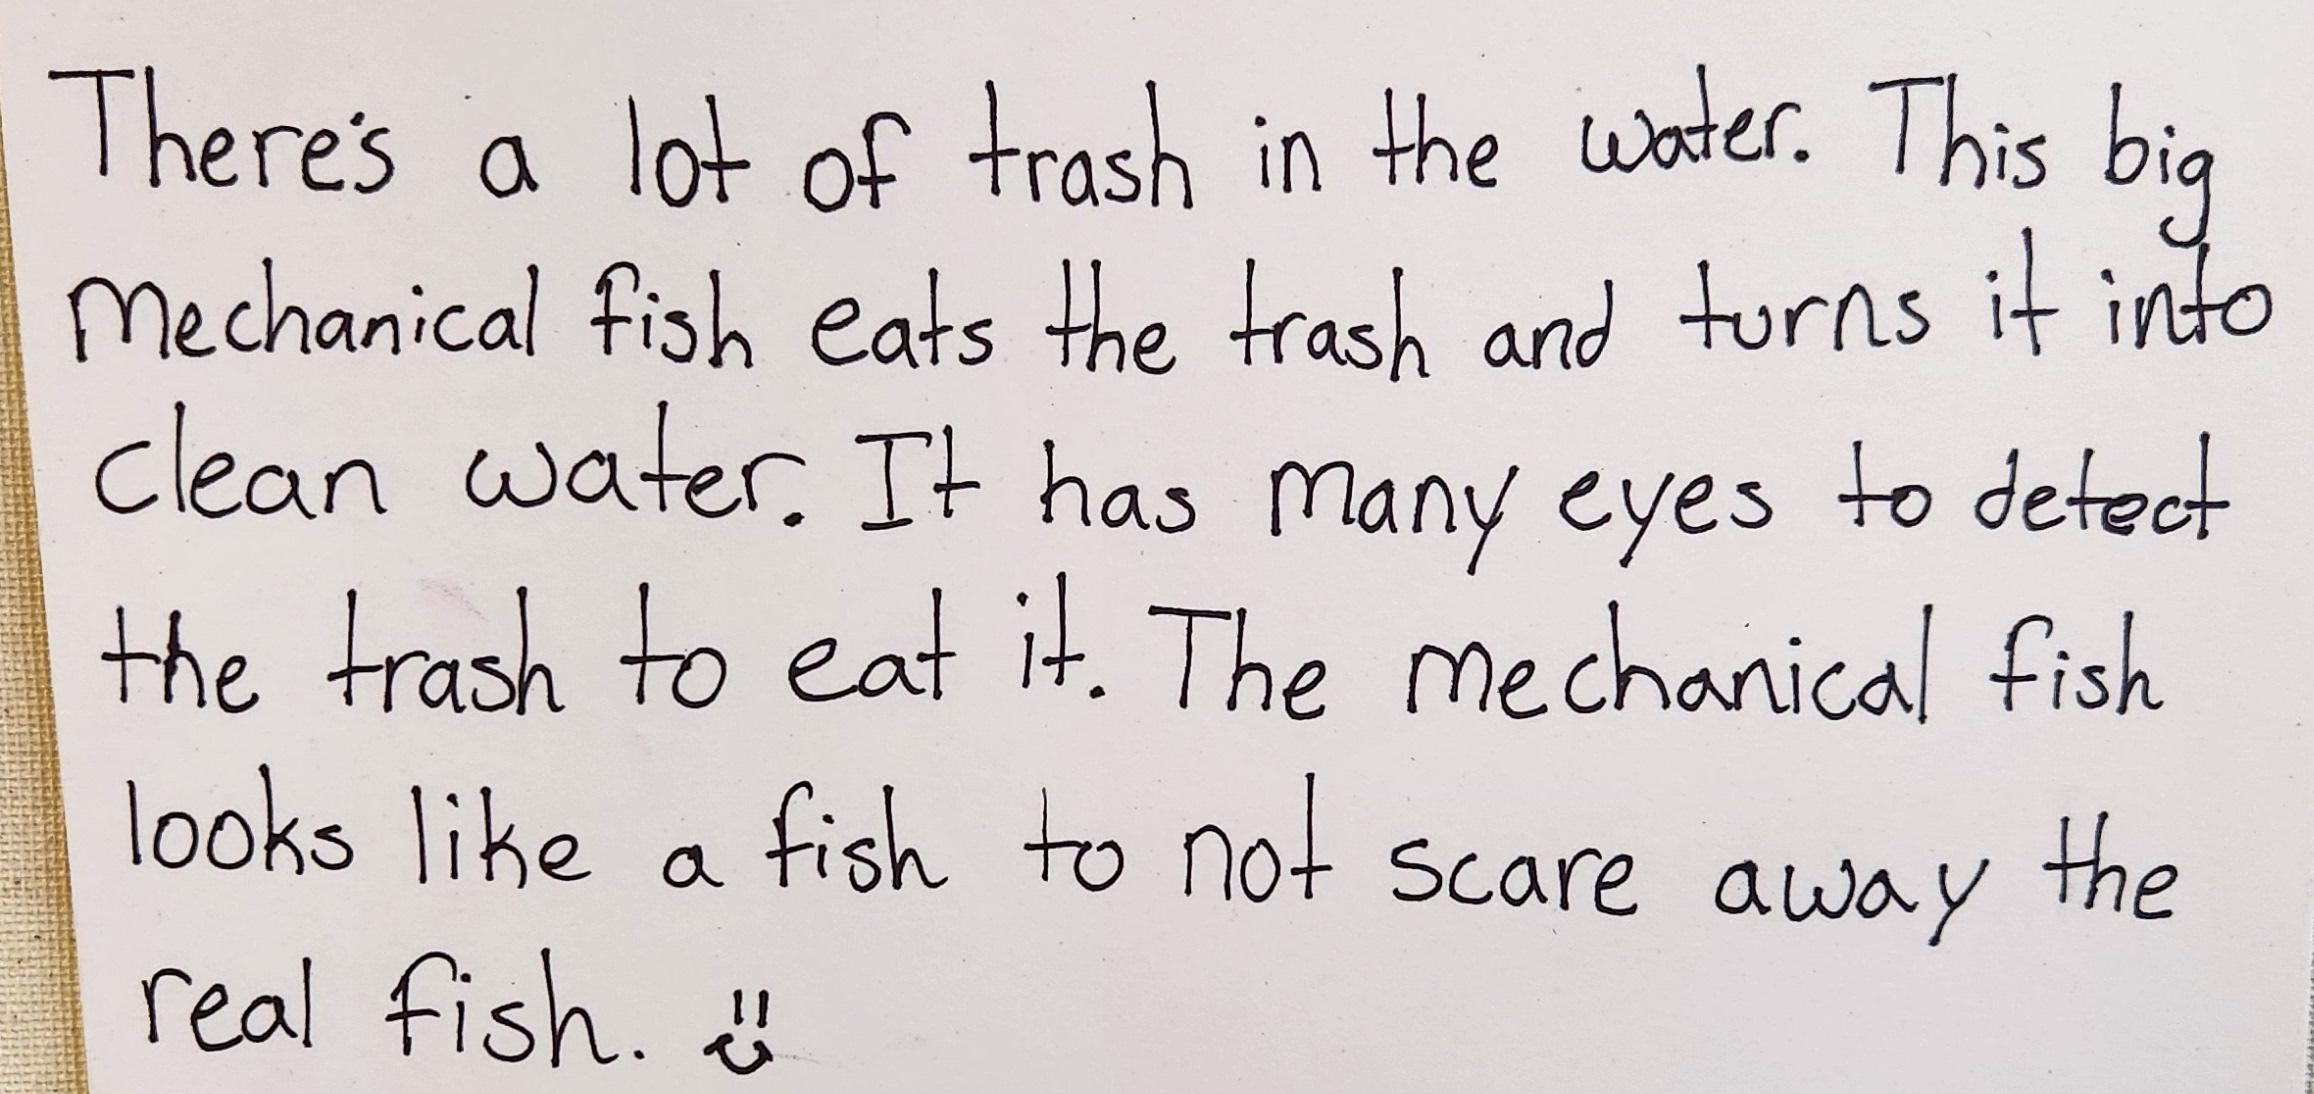 There's a lot of trash in the water. This big
mechanical fish eats the trash and turns it into
clean water. It has many eyes to detect
the trash to eat it. The mechanical fish
looks like a fish to not scare away the
real fish.